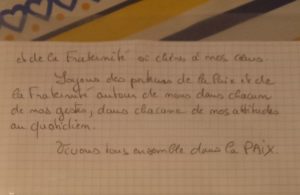 et de la Fraternité si chères à mes yeux.
Soyons des porteurs de la Paix et de
la Fraternité autour de nous dans chacun
de nos gestes, dans chacune de nos attitudes
au quotidien.
Vivons tous ensemble dans la PAIX.